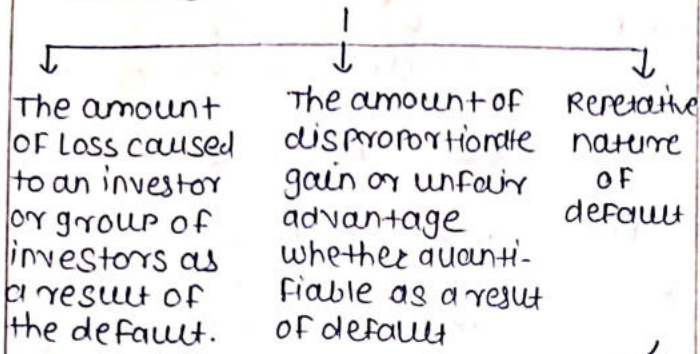 The amount
of Loss caused
to an investor
or group of
investors as
a result of
the default.
The amount of
disproportionate
gain or unfair
advantage
whether quanti-
fiable as a resut
of default
Repetative
nature
of
default